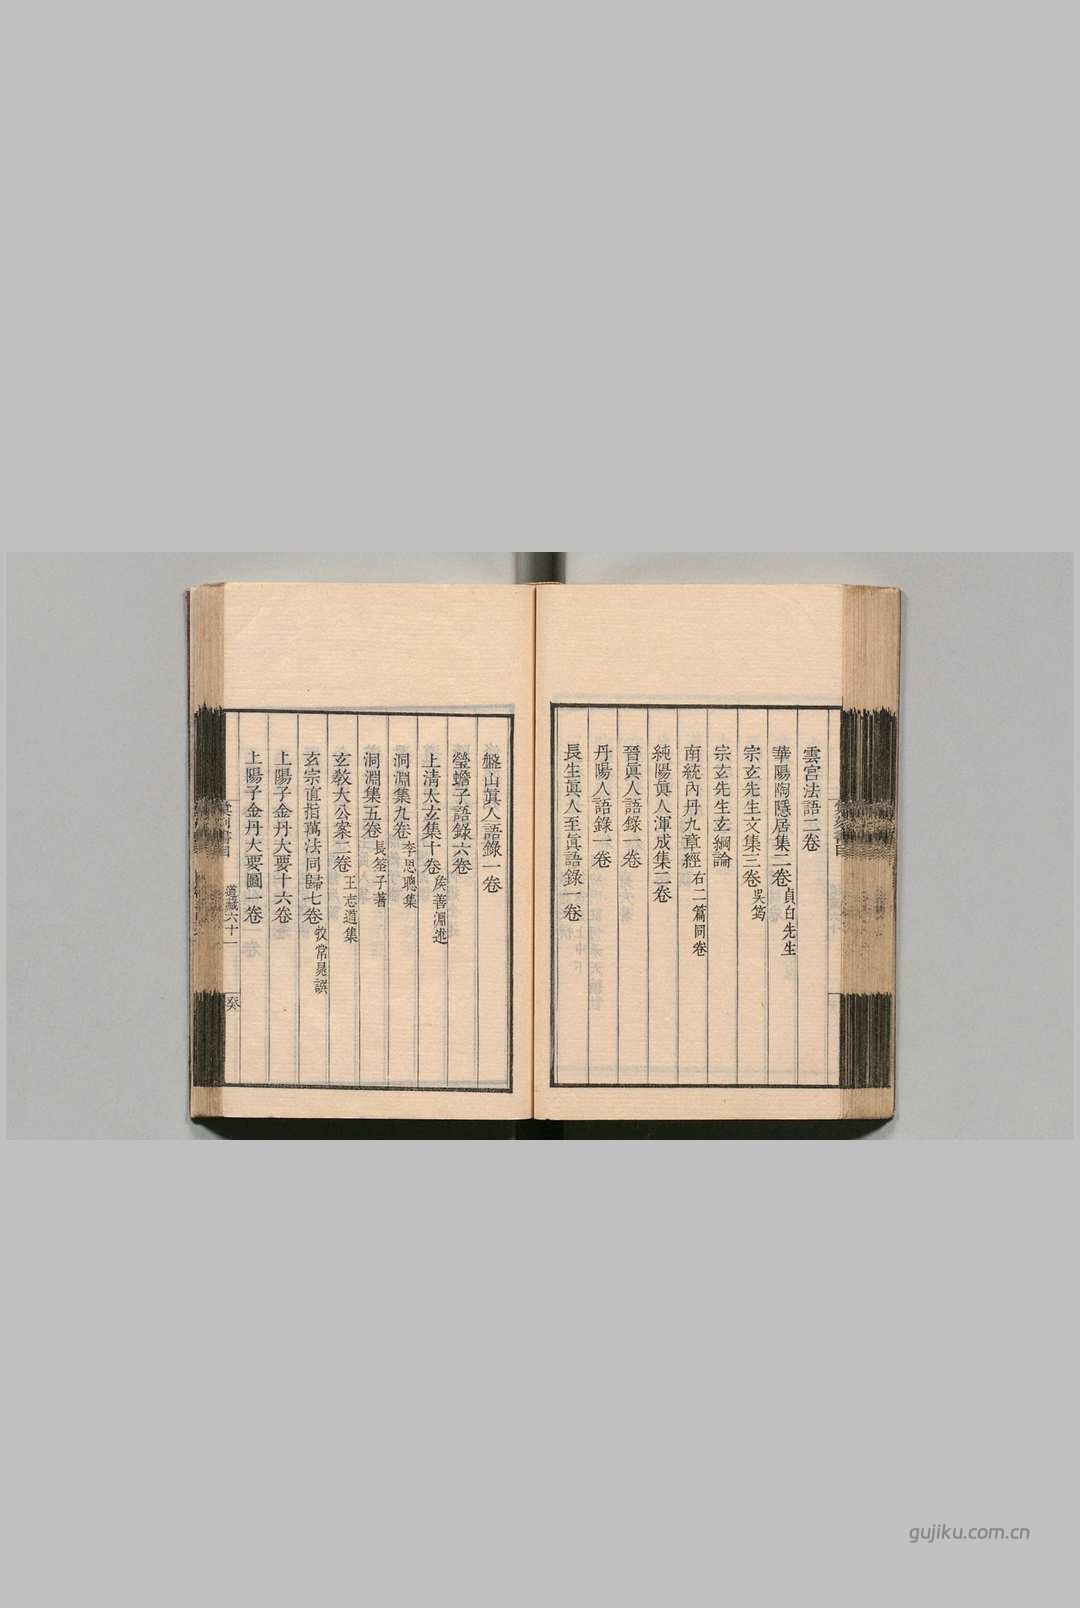 雲宮法語二卷
華陽陶隱居集二卷貞白先生
宗玄先生文集三卷吳筠
宗玄先生玄綱論
南統內丹九章經右二篇同卷
純陽眞人渾成集二卷
晉眞人語錄一卷
丹陽人語錄一卷
長生眞人至眞語錄一卷
盤山眞人語錄一卷
瑩蟾子語錄六卷
上清太玄集十卷矦善淵述
洞淵集九卷李思聰集
洞淵集五卷長筌子著
玄敎大公案二卷王志道集
玄宗直指萬法同歸七卷牧常晁譔
上陽子金丹大要十六卷
上陽子金丹大要圖一卷
彙刻書目
道藏六十一
癸
gujiku.com.cn